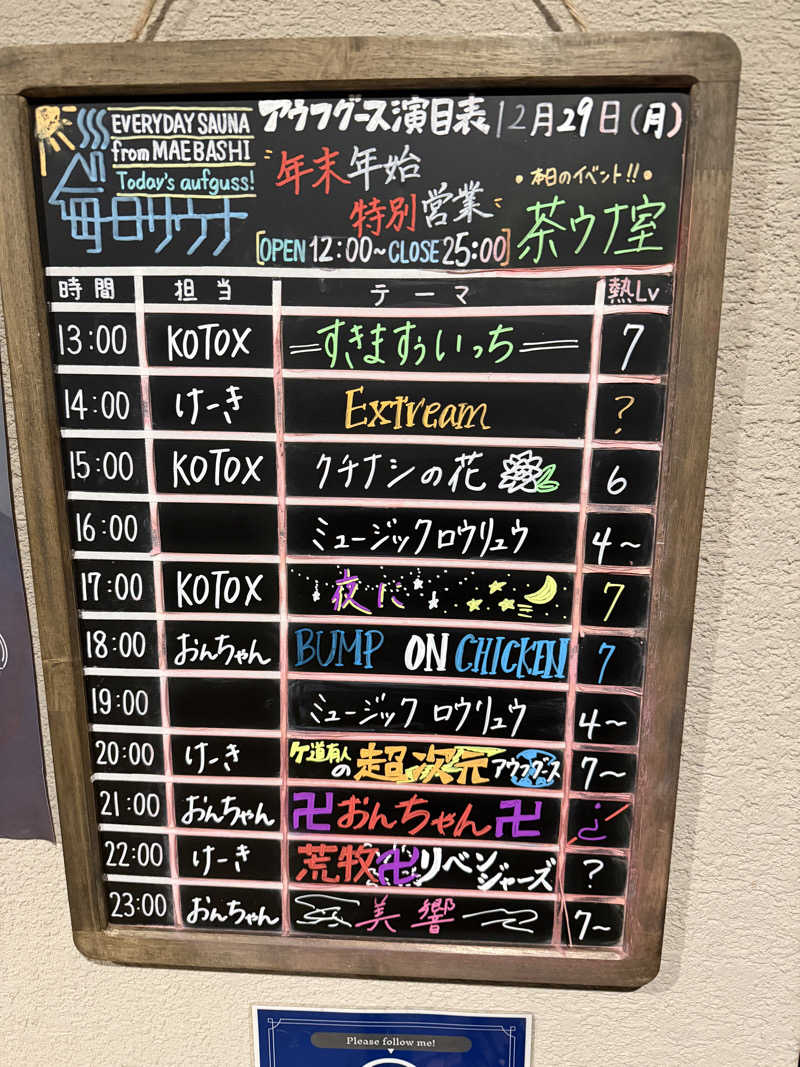 EVERYDAY SAUNA
from MAEBASHI
Today's aufguss!
毎日サウナ
アウフグース演目表 12月29日(月)
"年末年始
特別営業"
[OPEN 12:00~CLOSE 25:00]
・本日のイベント!!・
茶ウナ室
時間 担当 テーマ 熱Lv
13:00 KOTOX =すきますぅいっち= 7
14:00 けーき Extream ?
15:00 KOTOX クチナシの花 6
16:00 ミュージックロウリュウ 4~
17:00 KOTOX 夜に 7
18:00 おんちゃん BUMP ON CHICKEN 7
19:00 ミュージックロウリュウ 4~
20:00 けーき ケ道有人の超次元アウフグース 7~
21:00 おんちゃん 卍おんちゃん卍 ¿
22:00 けーき 荒牧卍リベンジャーズ ?
23:00 おんちゃん 美響 7~
Please follow me!